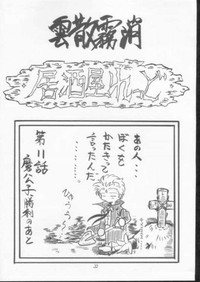 雲散霧消
居酒屋れっど
あの人、、、
ぼくを
かたきって
言ったんだ
・・・・・・・・。
ひゅうう
第11話
魔公子勝利のあと